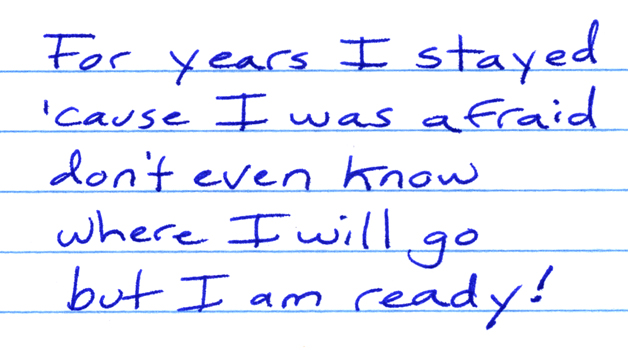 For years I stayed
'cause I was afraid
don't even know
where I will go
but I am ready!